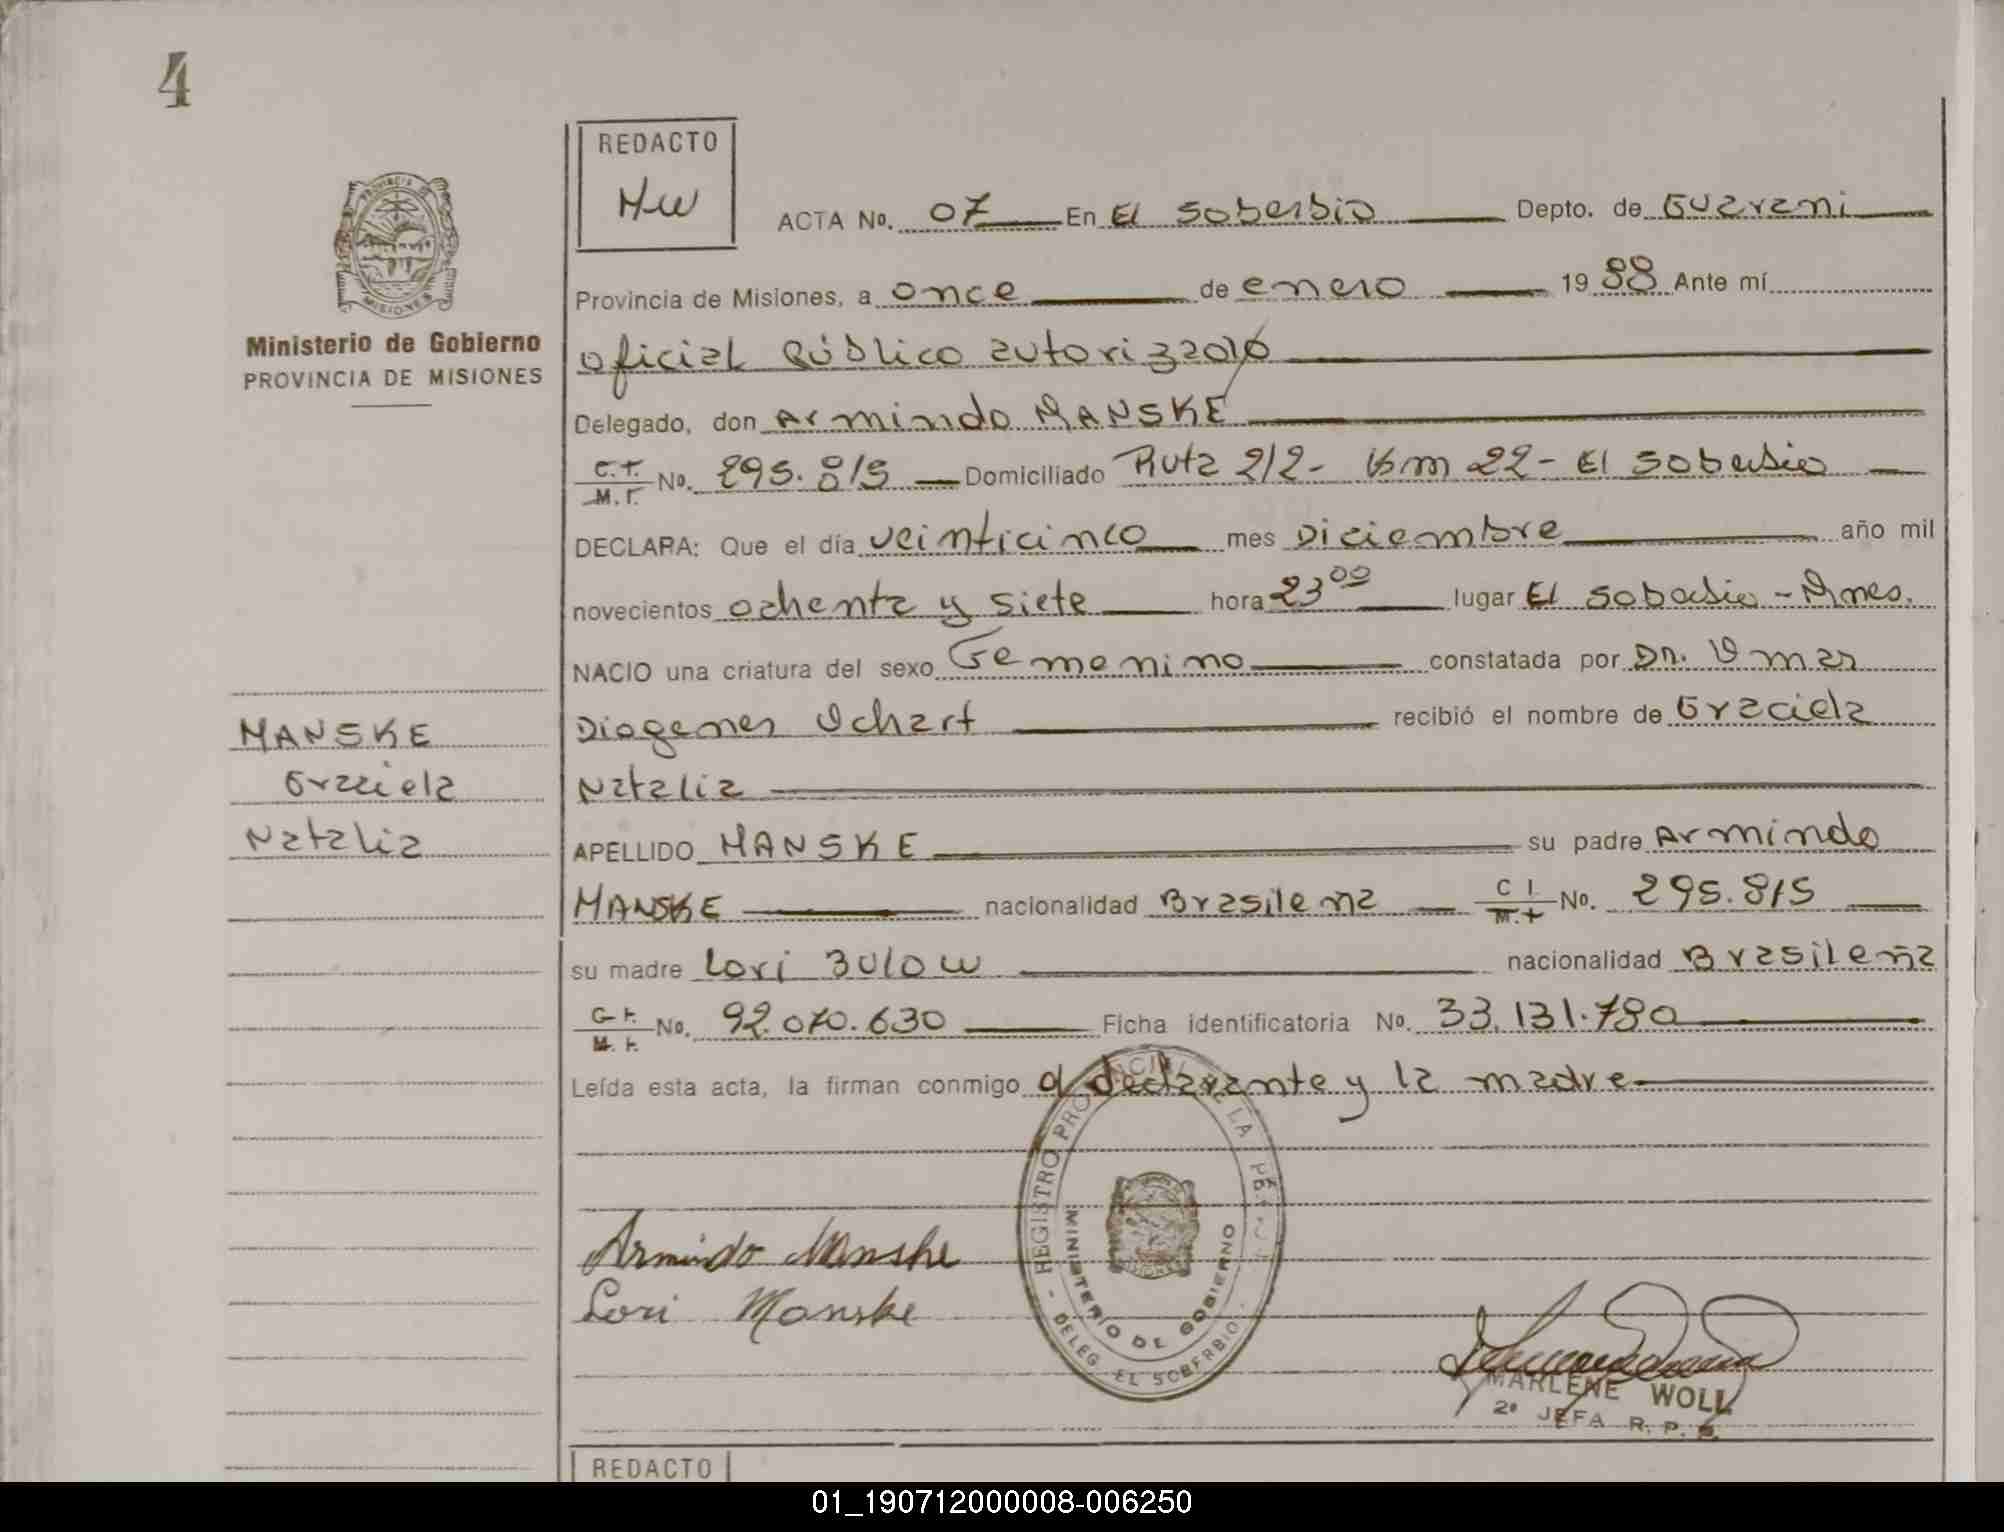 4
REDACTO
MW
PROVINCIA DE
MISIONES
Ministerio de Gobierno
PROVINCIA DE MISIONES
ACTA No. 07 En El Soberbio Depto. de Guarani
Provincia de Misiones, a once de enero 1988 Ante mí
Oficial Público autorizado
Delegado, don Armindo MANSKE
C.I. M.I. No. 295.815 Domiciliado Ruta 212- Km 22- El Soberbio
DECLARA: Que el día veinticinco mes Diciembre año mil
novecientos ochenta y siete hora 23 00 lugar El Soberbio - Mnes.
NACIO una criatura del sexo Femenino constatada por Dr. Omar
MANSKE
Graciela
Natalia
Diogenes Ochart recibió el nombre de Graciela
Natalia
APELLIDO MANSKE su padre Armindo
MANSKE nacionalidad Brasileña C I M.I No. 295.815
su madre Lori Bulow nacionalidad Brasileña
C.I. M.I. No. 92.070.630 Ficha identificatoria No. 33.131.780
Leída esta acta, la firman conmigo el declarante y la madre
REGISTRO PROVINCIAL DE LA
MINISTERIO DE GOBIERNO
- DELEG. EL SOBERBIO -
Armindo Manske
Lori Manske
MARLENE WOLL
2º JEFA R. P. P.
REDACTO
01_190712000008-006250